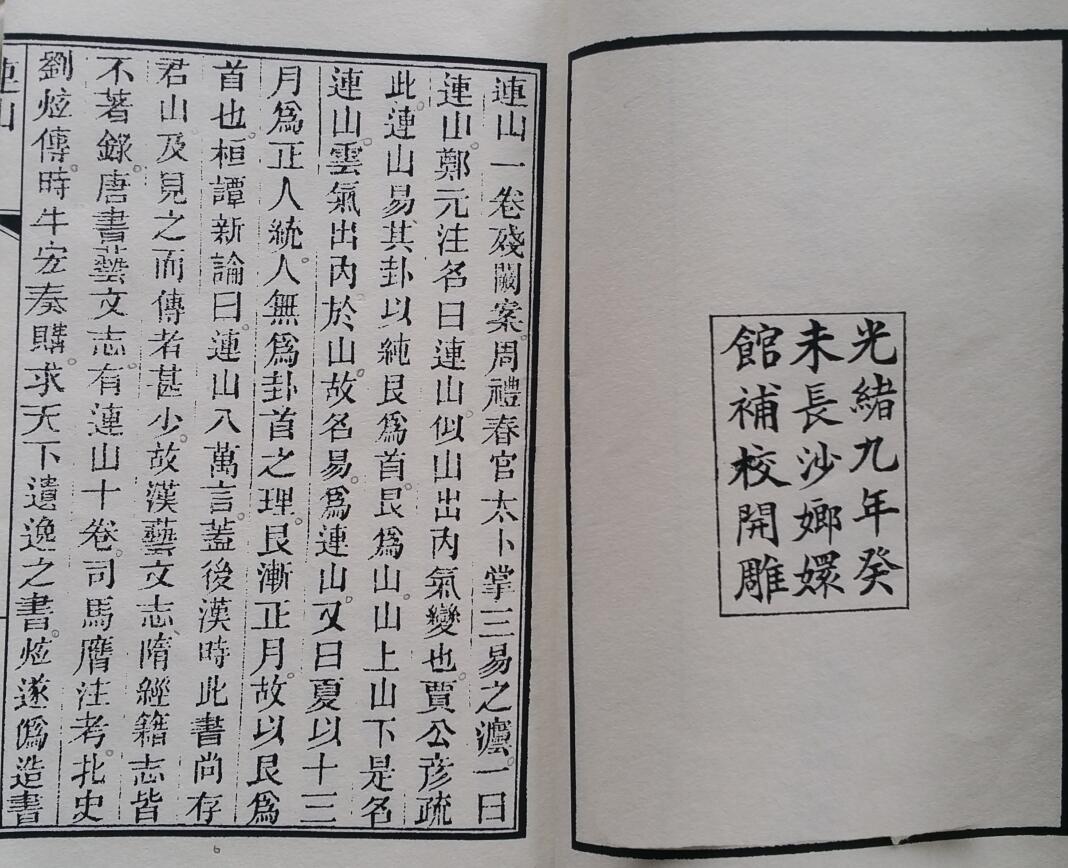 光緒九年癸
未長沙嫏嬛
館補校開雕
連山一卷殘闕案周禮春官太卜掌三易之灋一曰
連山鄭元注名曰連山似山出内氣變也賈公彦疏
此連山易其卦以純艮爲首艮爲山山上山下是名
連山雲氣出内於山故名易爲連山又曰夏以十三
月爲正人統人無爲卦首之理艮漸正月故以艮爲
首也桓譚新論曰連山八萬言蓋後漢時此書尚存
君山及見之而傳者甚少故漢藝文志隋經籍志皆
不著錄唐書藝文志有連山十卷司馬膺注考北史
劉炫傳時牛宏奏購求天下遺逸之書炫遂僞造書
連山